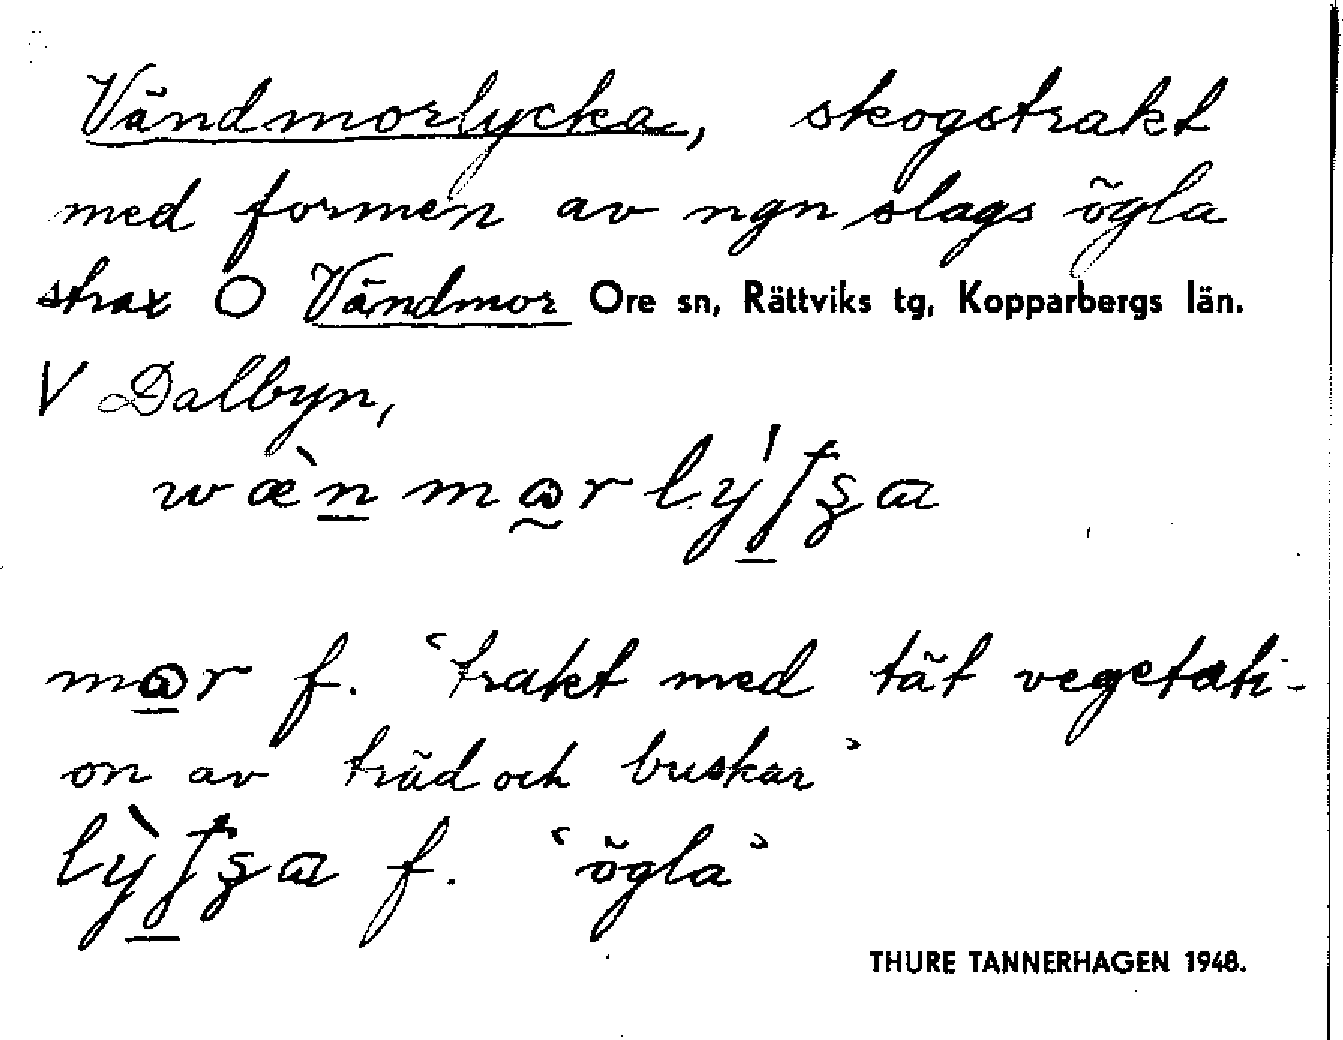 Vändmorlycka, skogstrakt
med formen av ngn slags ögla
strax O Vändmor Ore sn, Rättviks tg, Kopparbergs län.
V Dalbyn,
f. ‘trakt med tät vegetati-
on av träd och buskar’
f. ‘ögla’
THURE TANNERHAGEN 1948.